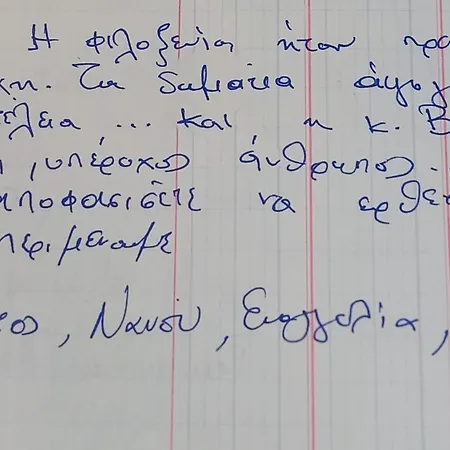 Η φιλοξενία ήταν πρα
κη. Τα δωμάτια άψογ
έλεια ... και η κ. Β
, υπέροχος άνθρωπος ..
αποφασίσετε να ερθε
περιμέναμε
ος, Νανσύ, Ευαγγελία,